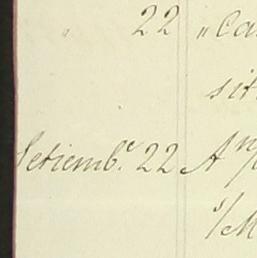 " 22 " Ca
sit
Setiembᵉ 22 A
s/M